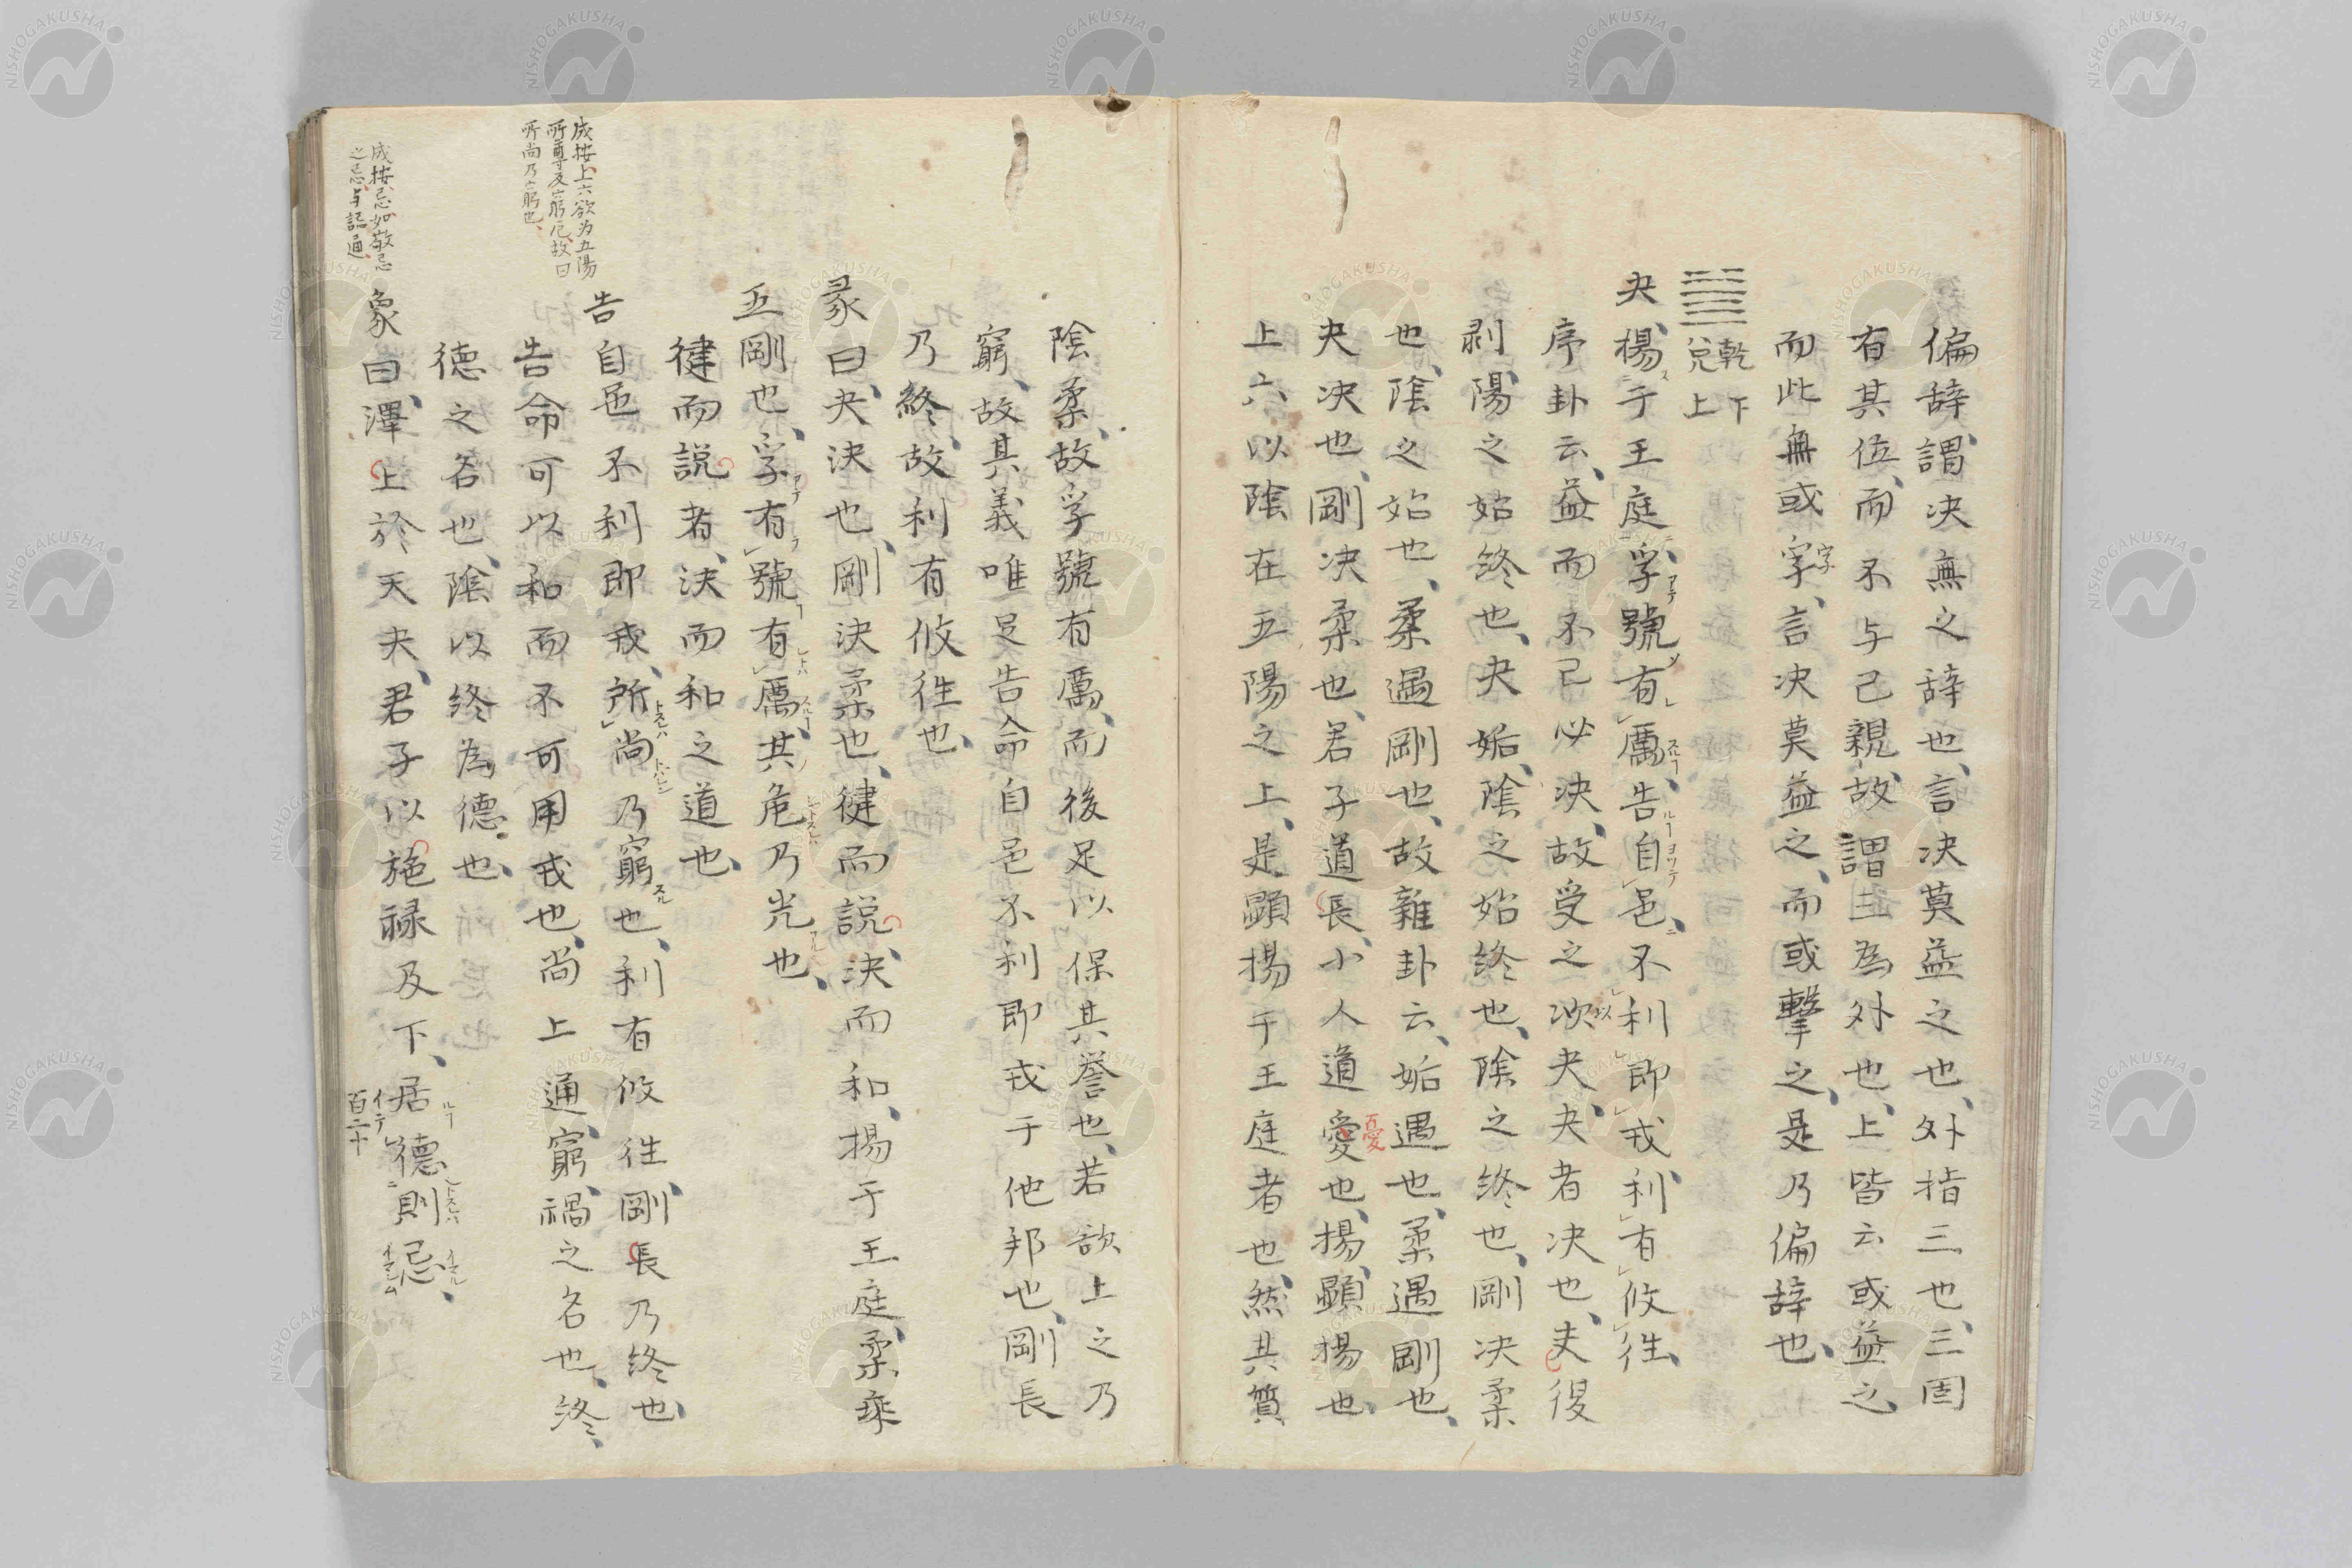 偏辞謂決無之辞也、言決莫益之也、外指三也、三固
有其位、而不与己親、故謂三為外也、上皆云或益之、
而此無或字字、言決莫益之、而或擊之、是乃偏辞也、
乾下
兌上
夬、揚于王庭、孚號有厲、告自邑、不利即戎、利有攸往、
序卦云、益而不已必決、故受之以夬、夬者決也、夫復
剥陽之始終也、夬姤、陰之始終也、陰之終也、剛決柔
也、陰之始也、柔遇剛也、故雜卦云、姤遇也、柔遇剛也、
夬決也、剛決柔也、君子道長、小人道憂也、揚、顕揚也、
上六以陰在五陽之上、是顕揚于王庭者也、然其質
陰柔、故孚號有厲、而後足以保其誉也、若欲上之乃
窮、故其義唯足告命自邑不利即戎于他邦也、剛長
乃終、故利有攸往也、
彖曰、夬決也、剛決柔也、健而説、決而和、揚于王庭、柔乗
五剛也、孚有號有厲、其危乃光也、
健而説者、決而和之道也、
告自邑不利即戎、所尚乃窮也、利有攸往、剛長乃終也、
告命可以和而不可用戎也、尚上通、窮、禍之名也、終、
德之名也、陰以終為德也、
象曰、澤上於天夬、君子以施禄及下、居德則忌、
成按、上六欲为五陽
所尊及窮厄、故曰
所尚乃窮也、
成按、忌如敬忌
之忌、与誋通
百二十
NISHOGAKUSHA